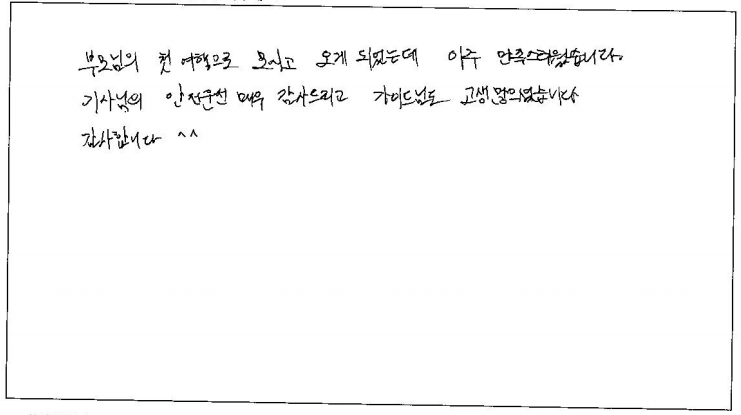 부모님의 첫 여행으로 모시고 오게 되었는데 아주 만족스러웠습니다.
기사님의 안전운전 매우 감사드리고 가이드님도 고생 많으셨습니다
감사합니다 ^^